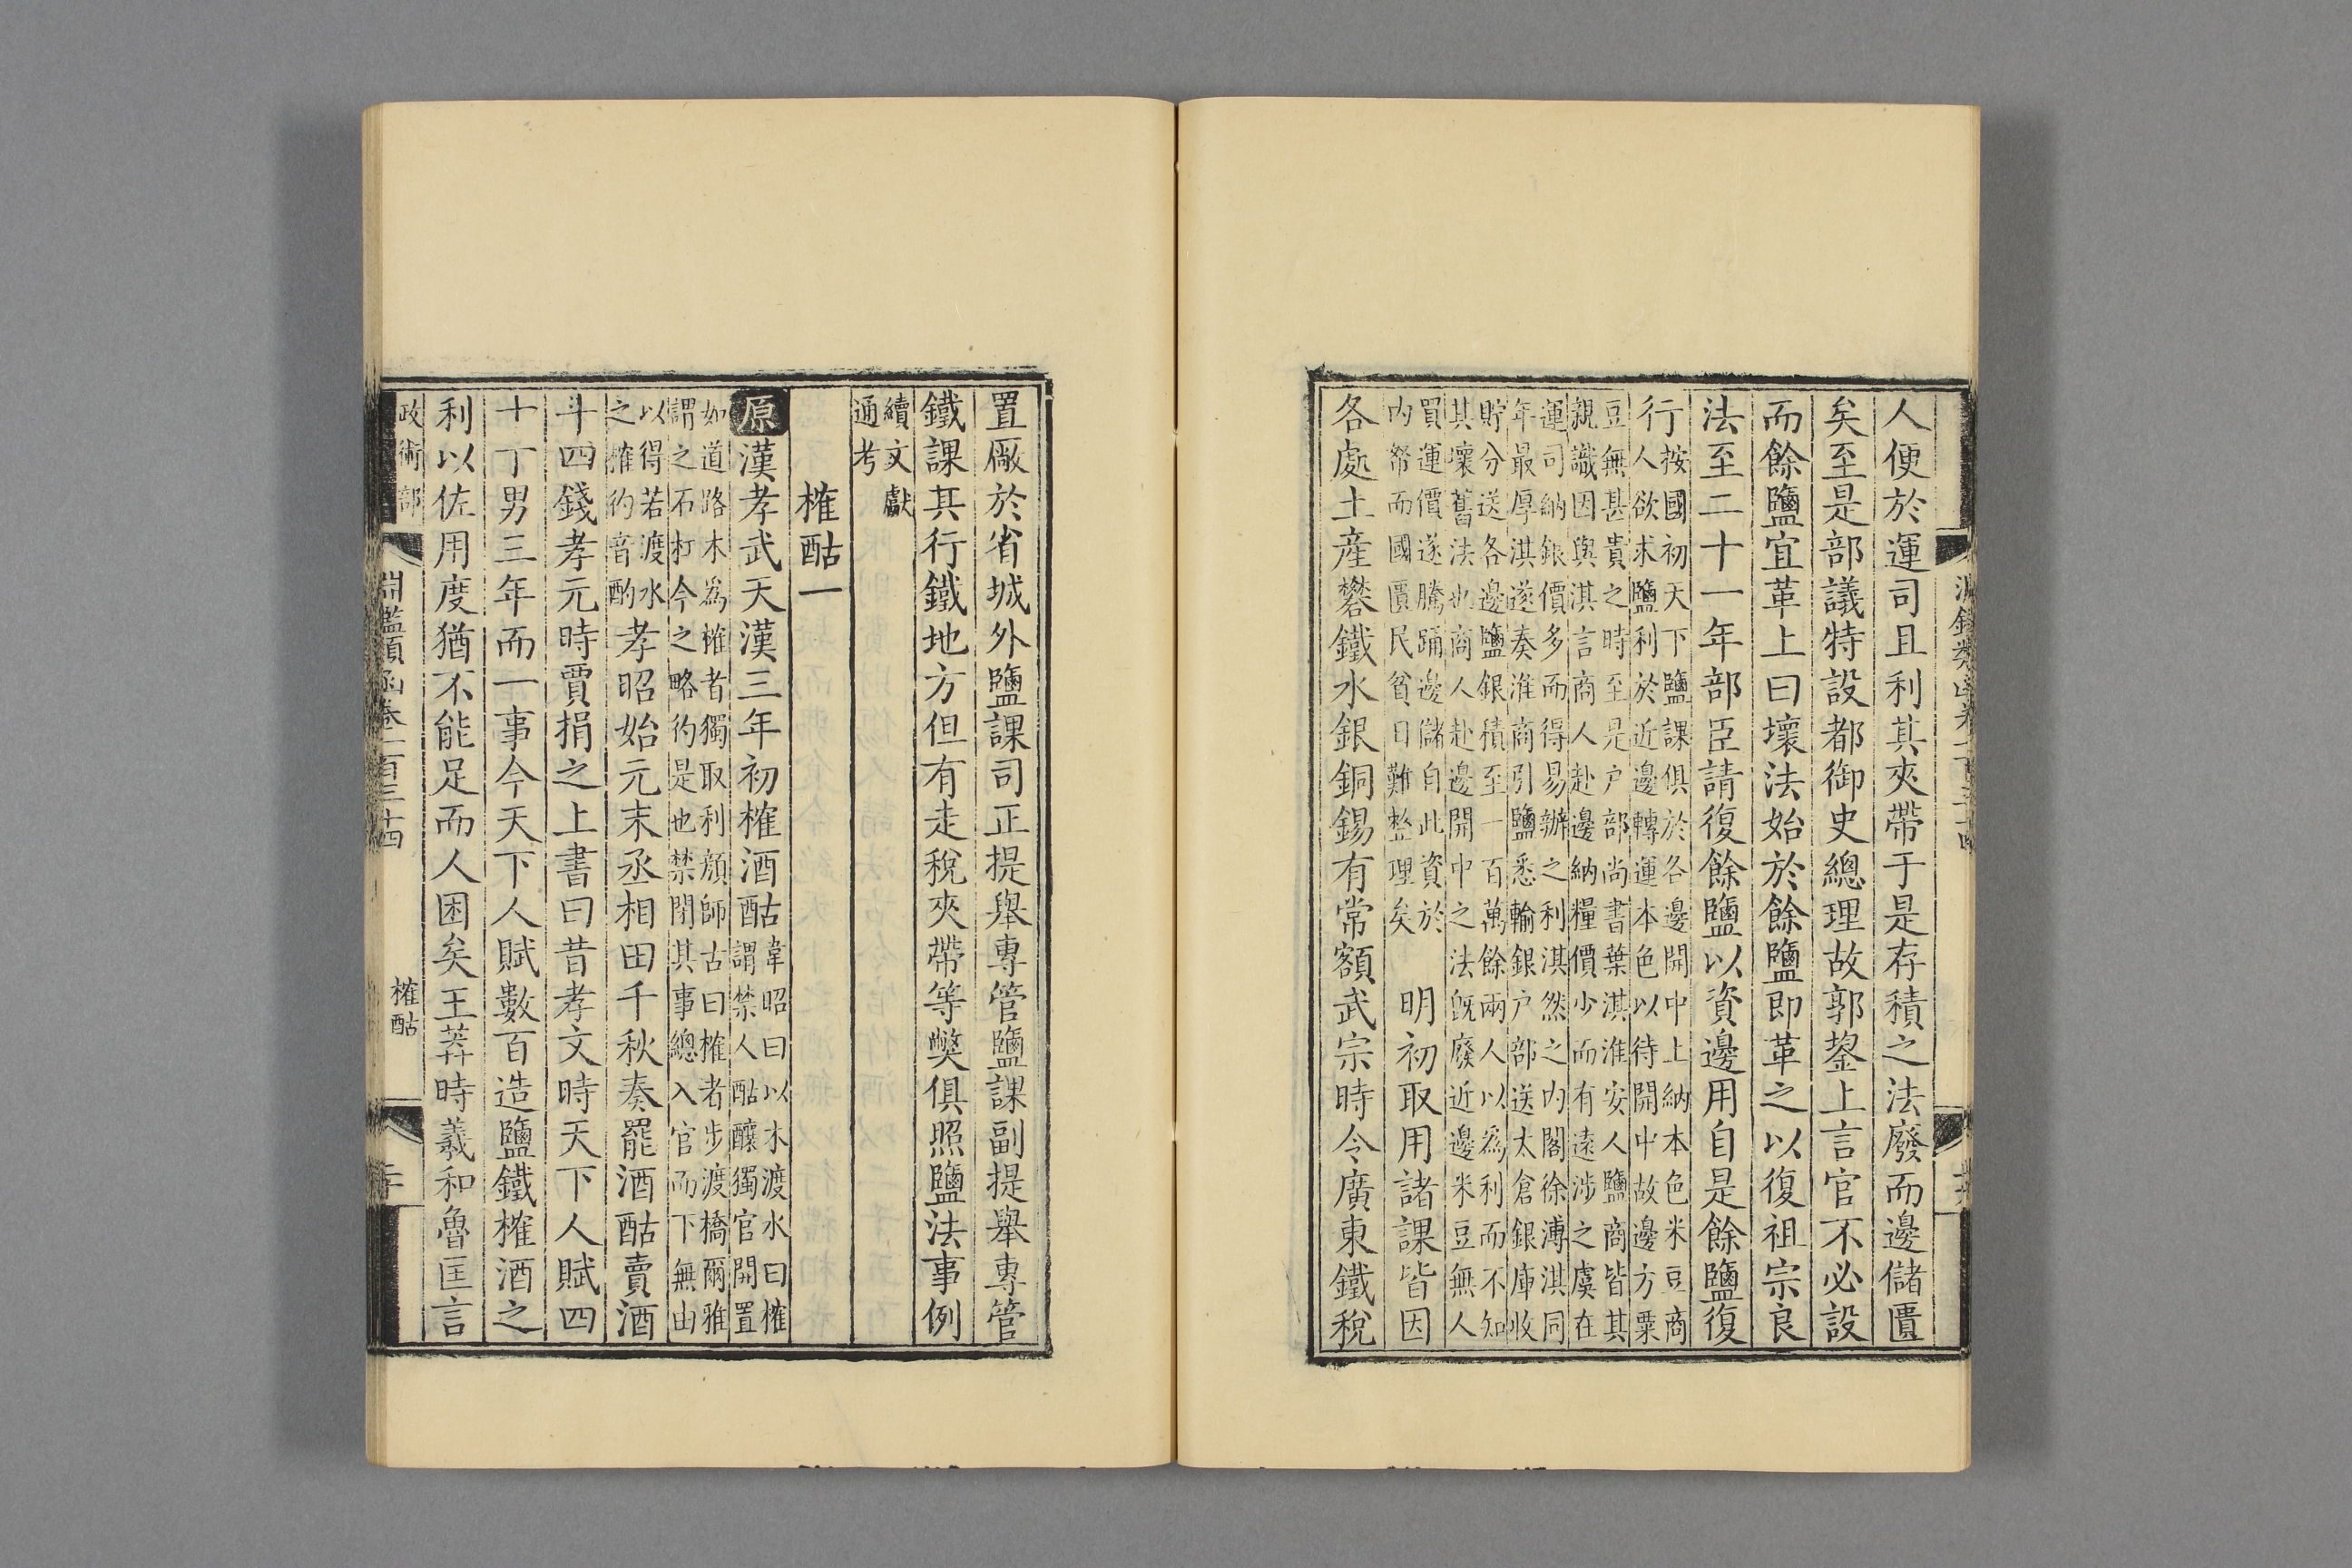 人便於運司且利其夾帶于是存積之法廢而邊儲匱
矣至是部議特設都御史總理故郭鋆上言官不必設
而餘鹽宜革上曰壞法始於餘鹽即革之以復祖宗良
法至二十一年部臣請復餘鹽以資邊用自是餘鹽復
行
按國初天下鹽課俱於各邊開中上納本色米豆商
人欲求鹽利於近邊轉運本色以待開中故邊方粟
豆無甚貴之時至是户部尚書葉淇淮安人鹽商皆其
親識因與淇言商人赴邊納糧價少而有遠涉之虞在
運司納銀價多而得易辦之利淇然之内閣徐溥淇同
年最厚淇遂奏淮商引鹽悉輸銀户部送太倉銀庫收
貯分送各邊鹽銀積至一百萬餘兩人以為利而不知
其壞舊法也商人赴邊開中之法旣廢近邊米豆無人
買運價遂騰踊邊儲自此資於
内帑而國匱民貧日難整理矣
明初取用諸課皆因
各處土産礬鐵水銀銅錫有常額武宗時令廣東鐵稅
置厰於省城外鹽課司正提舉專管鹽課副提舉專管
鐵課其行鐵地方但有走稅夾帶等獘俱照鹽法事例
續文獻
通考
榷酤一
原漢孝武天漢三年初榷酒酤
韋昭曰以木渡水曰榷
謂禁人酤釀獨官開置
如道路木爲榷者獨取利顔師古曰榷者步渡橋爾雅
謂之石杠今之略彴是也禁閉其事總入官而下無由
以得若渡水
之榷彴音酌
孝昭始元末丞相田千秋奏罷酒酤賣酒
斗四錢孝元時賈捐之上書曰昔孝文時天下人賦四
十丁男三年而一事今天下人賦數百造鹽鐵榷酒之
利以佐用度猶不能足而人困矣王莽時羲和魯匡言
政術部
淵鑑類函卷一百三十四
榷酤